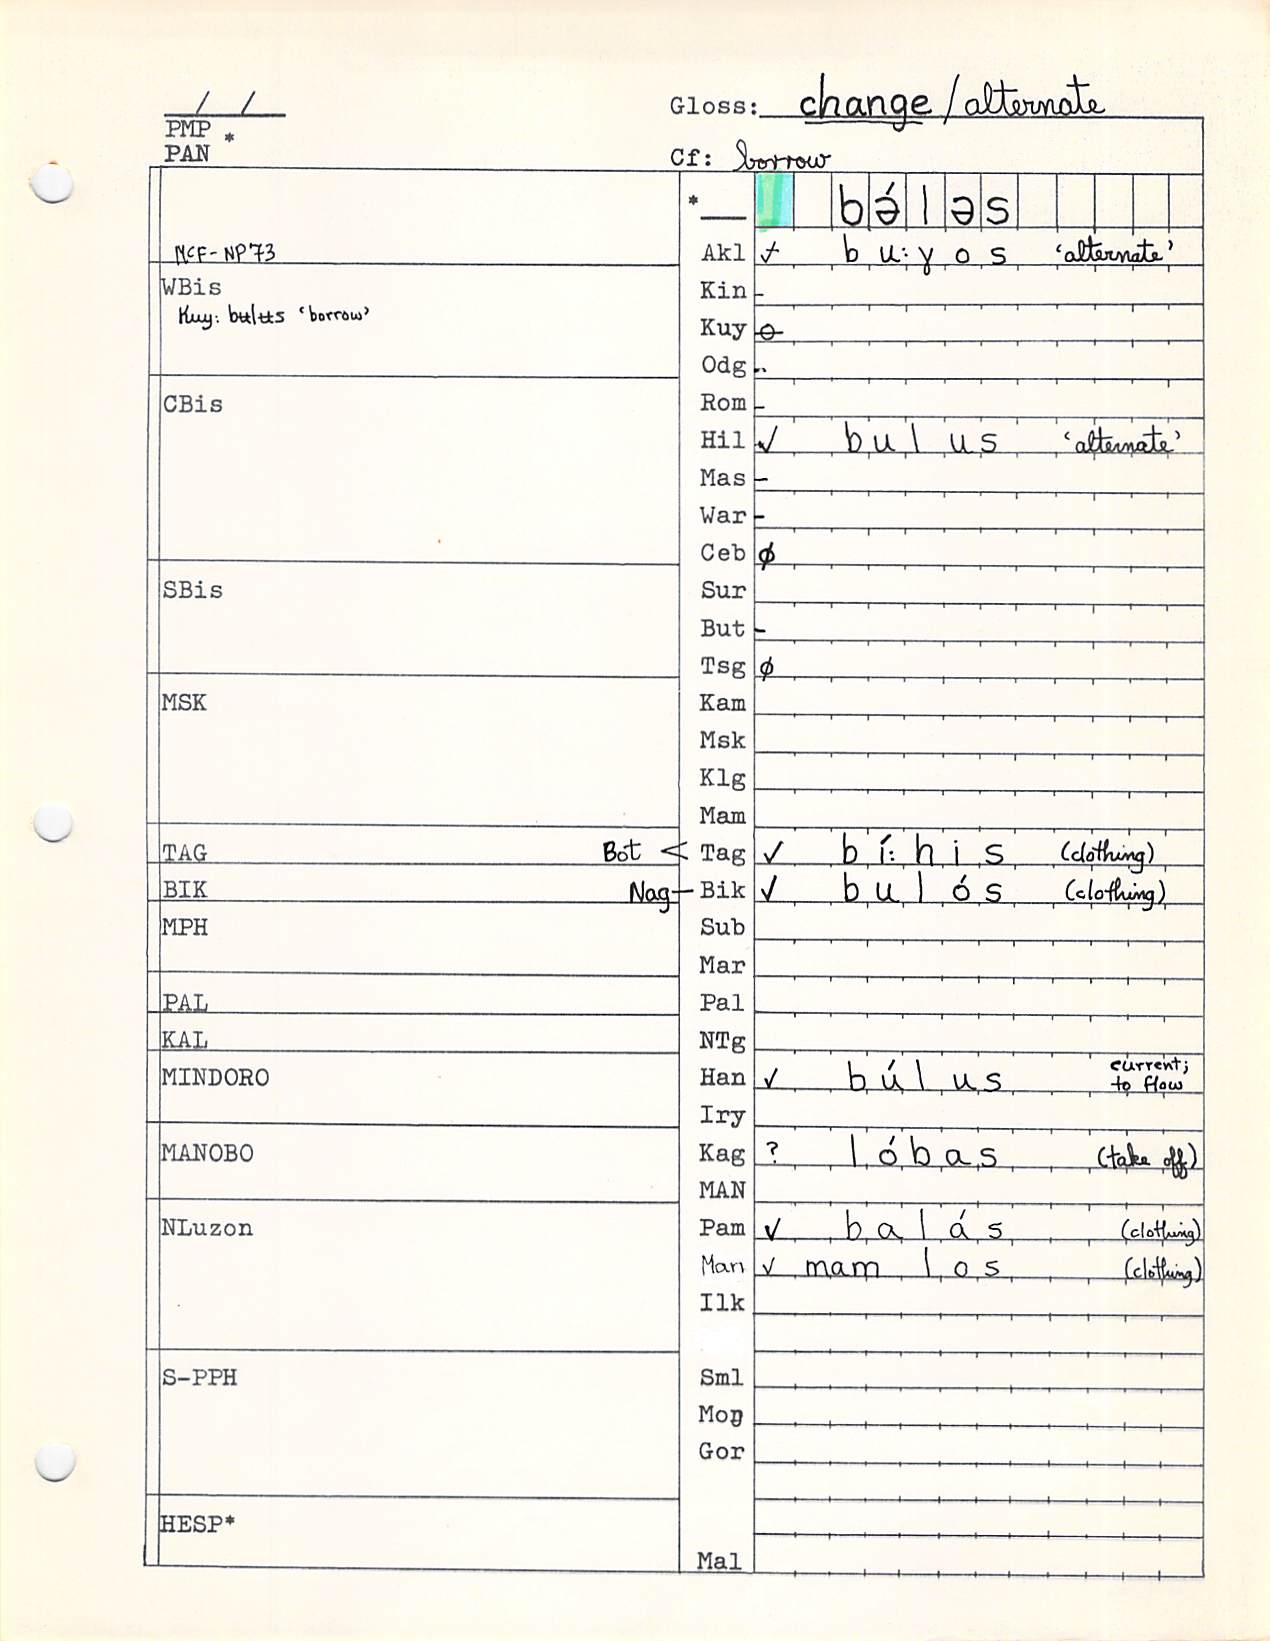 / /
PMP *
PAN
Gloss: change / alternate
Cf: borrow
* b ə́ l ə s
McF-NP'73
Akl ✓ b u: ɣ o s 'alternate'
WBis
Kuy: bʉlʉs 'borrow'
Kin -
Kuy ⦵
Odg -
CBis
Rom -
Hil ✓ b u l u s 'alternate'
Mas -
War -
Ceb ϕ
SBis
Sur
But -
Tsg ϕ
MSK
Kam
Msk
Klg
Mam
TAG Bot < Tag ✓ b í: h i s (clothing)
BIK Nag — Bik ✓ b u l ó s (clothing)
MPH
Sub
Mar
PAL
Pal
KAL
NTg
MINDORO
Han ✓ b ú l u s current; to flow
Iry
MANOBO
Kag ? l ó b a s (take off)
MAN
NLuzon
Pam ✓ b a l á s (clothing)
✓ mam l o s (clothing)
Ilk
S-PPH
Sml
Moŋ
Gor
HESP*
Mal